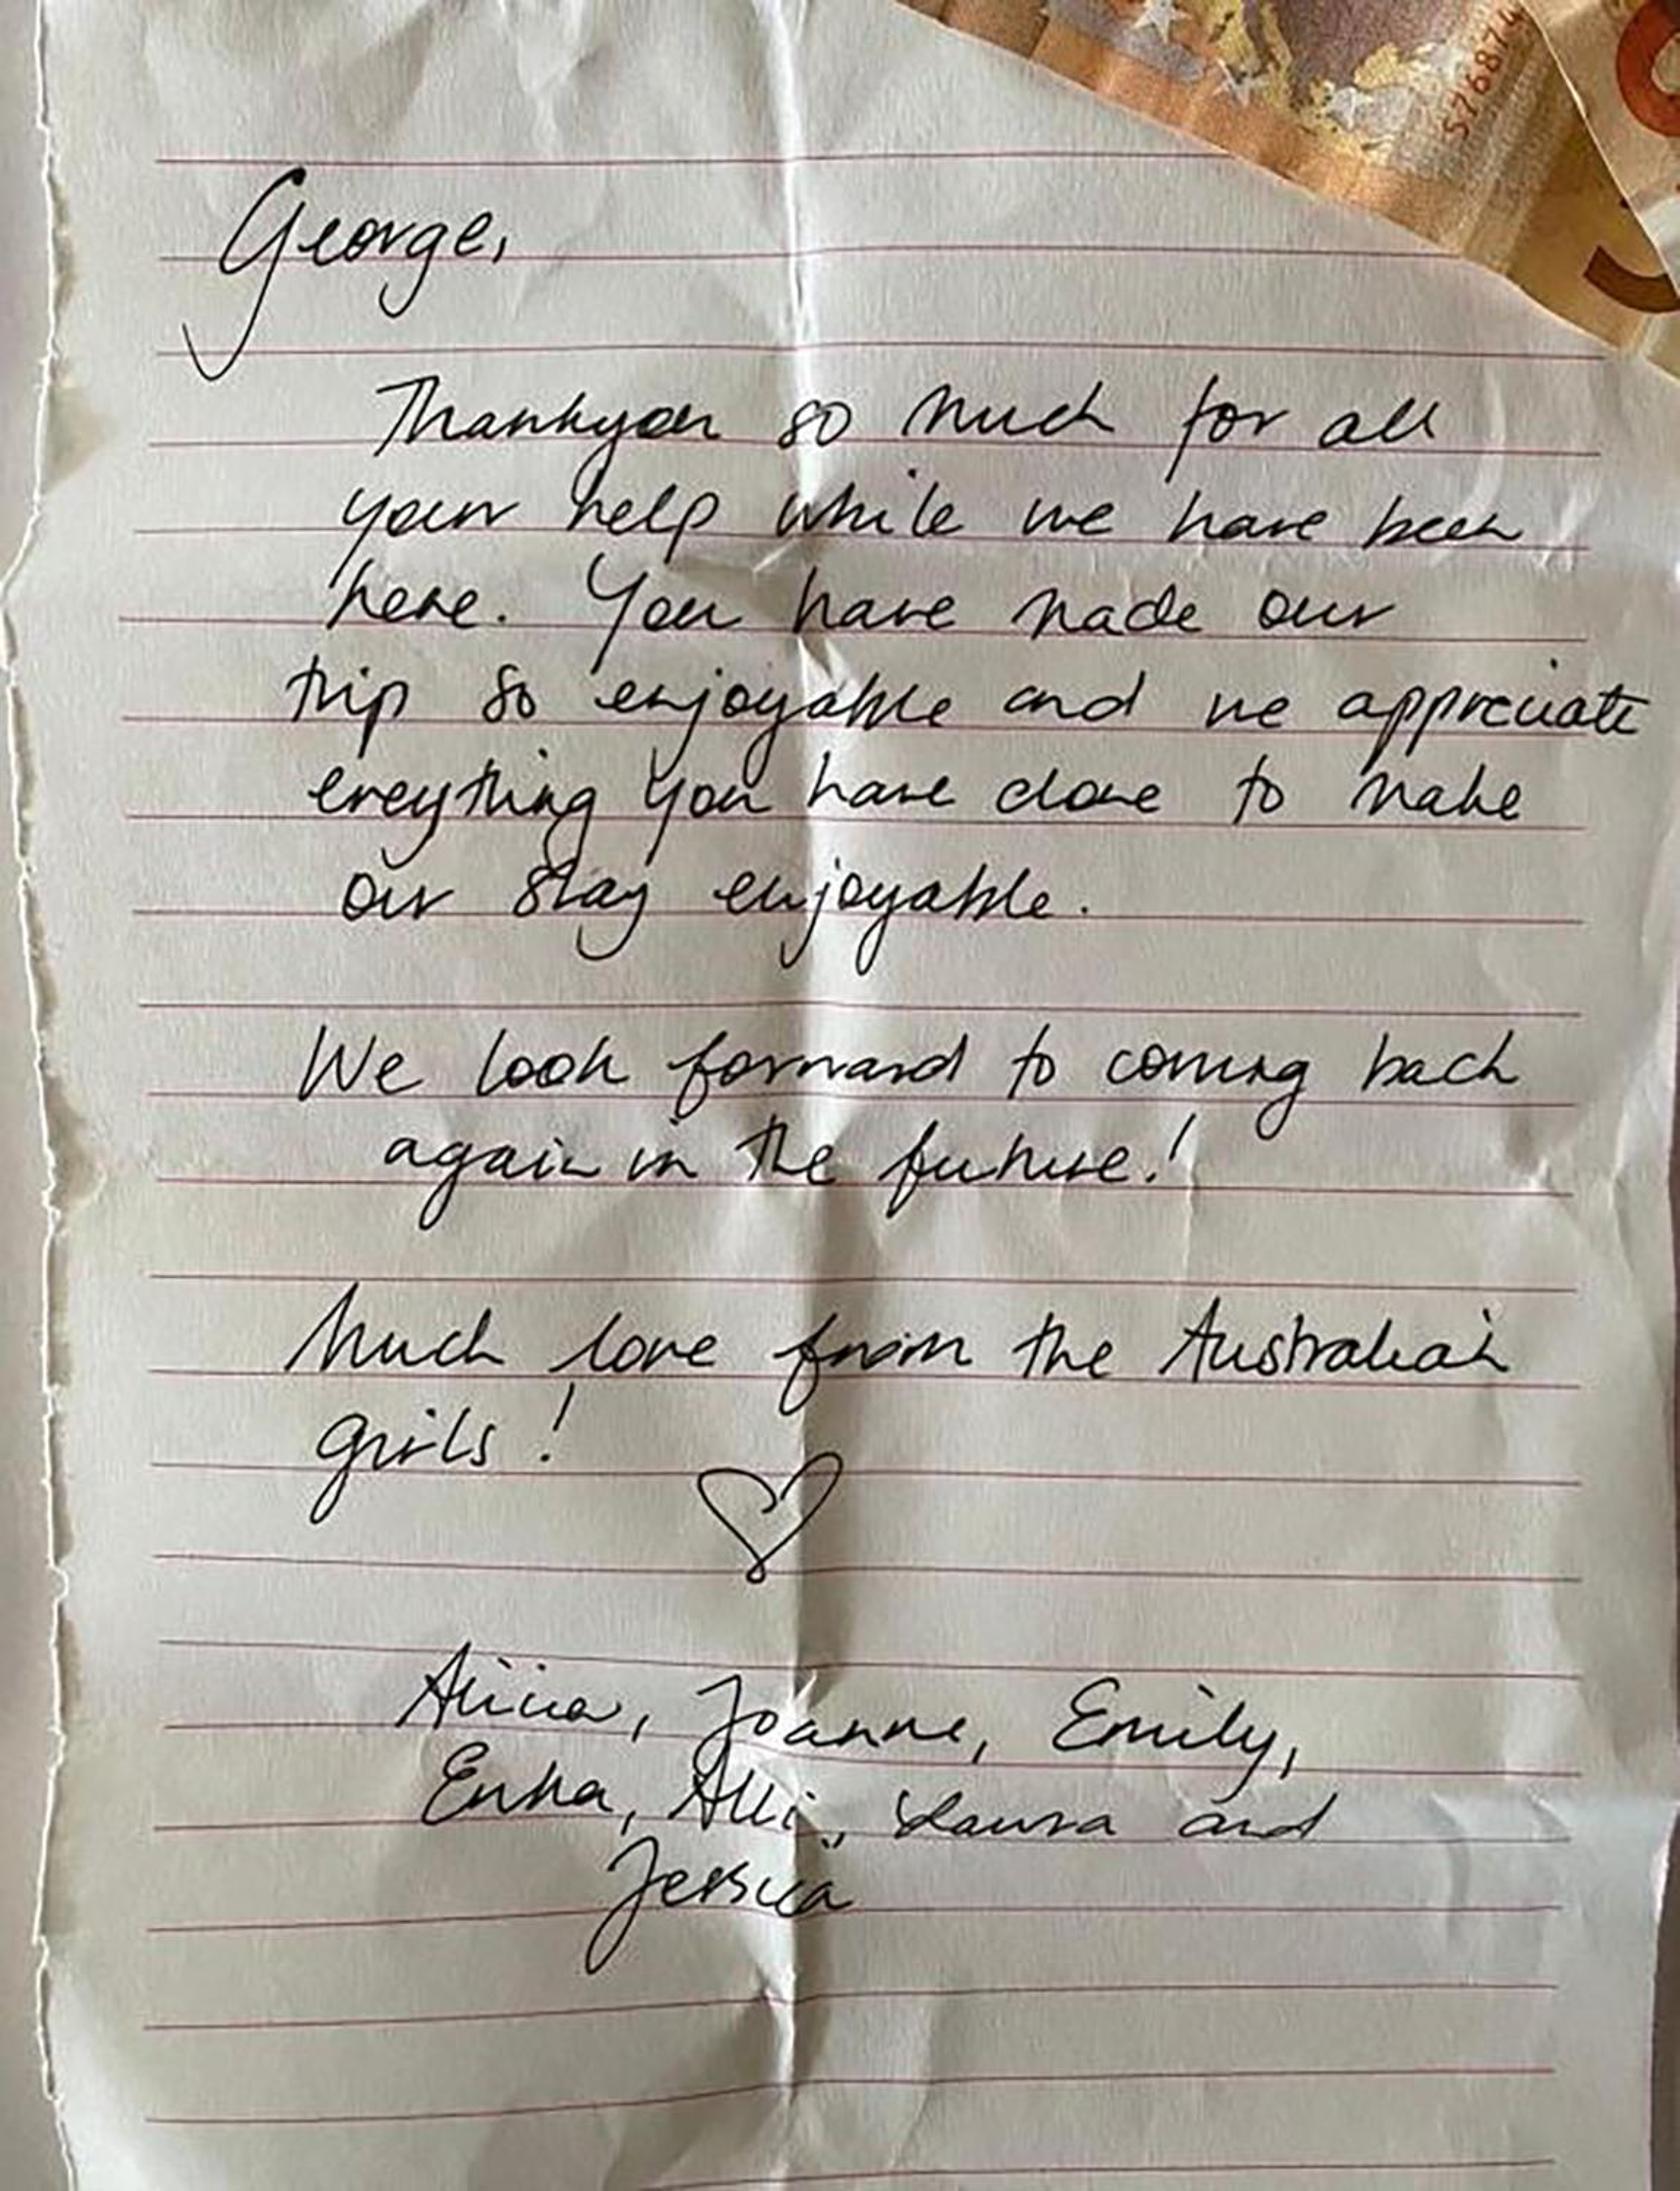 576874
George,
Thankyou so much for all
your help while we have been
here. You have made our
trip so enjoyable and we appreciate
ereything you have done to make
our stay enjoyable.
We look forward to coming back
again in the future!
Much love from the Australian
girls!
Alicia, Joanne, Emily,
Alli, Laura and
Jessica